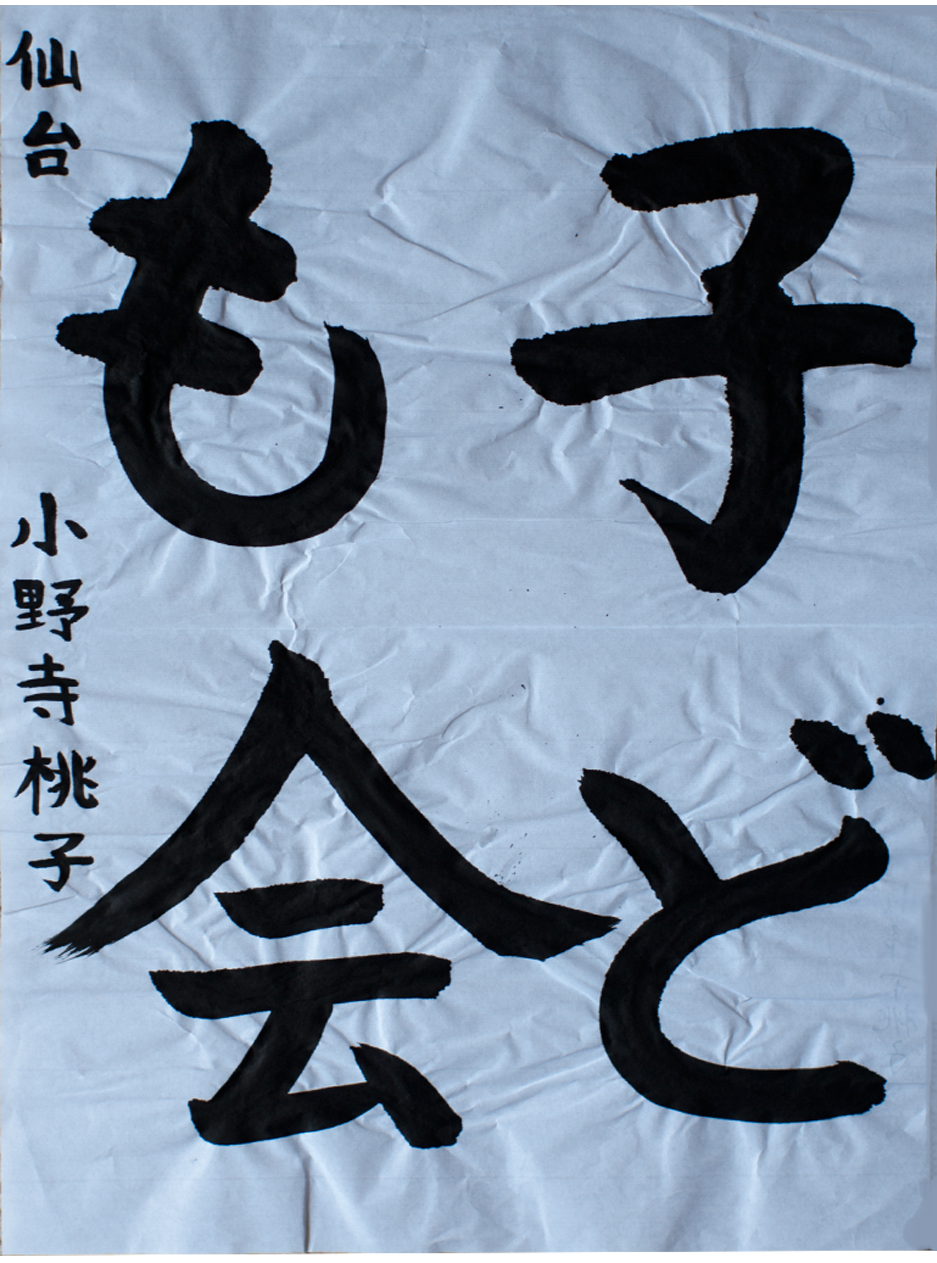 子ど
も会
仙台 小野寺桃子